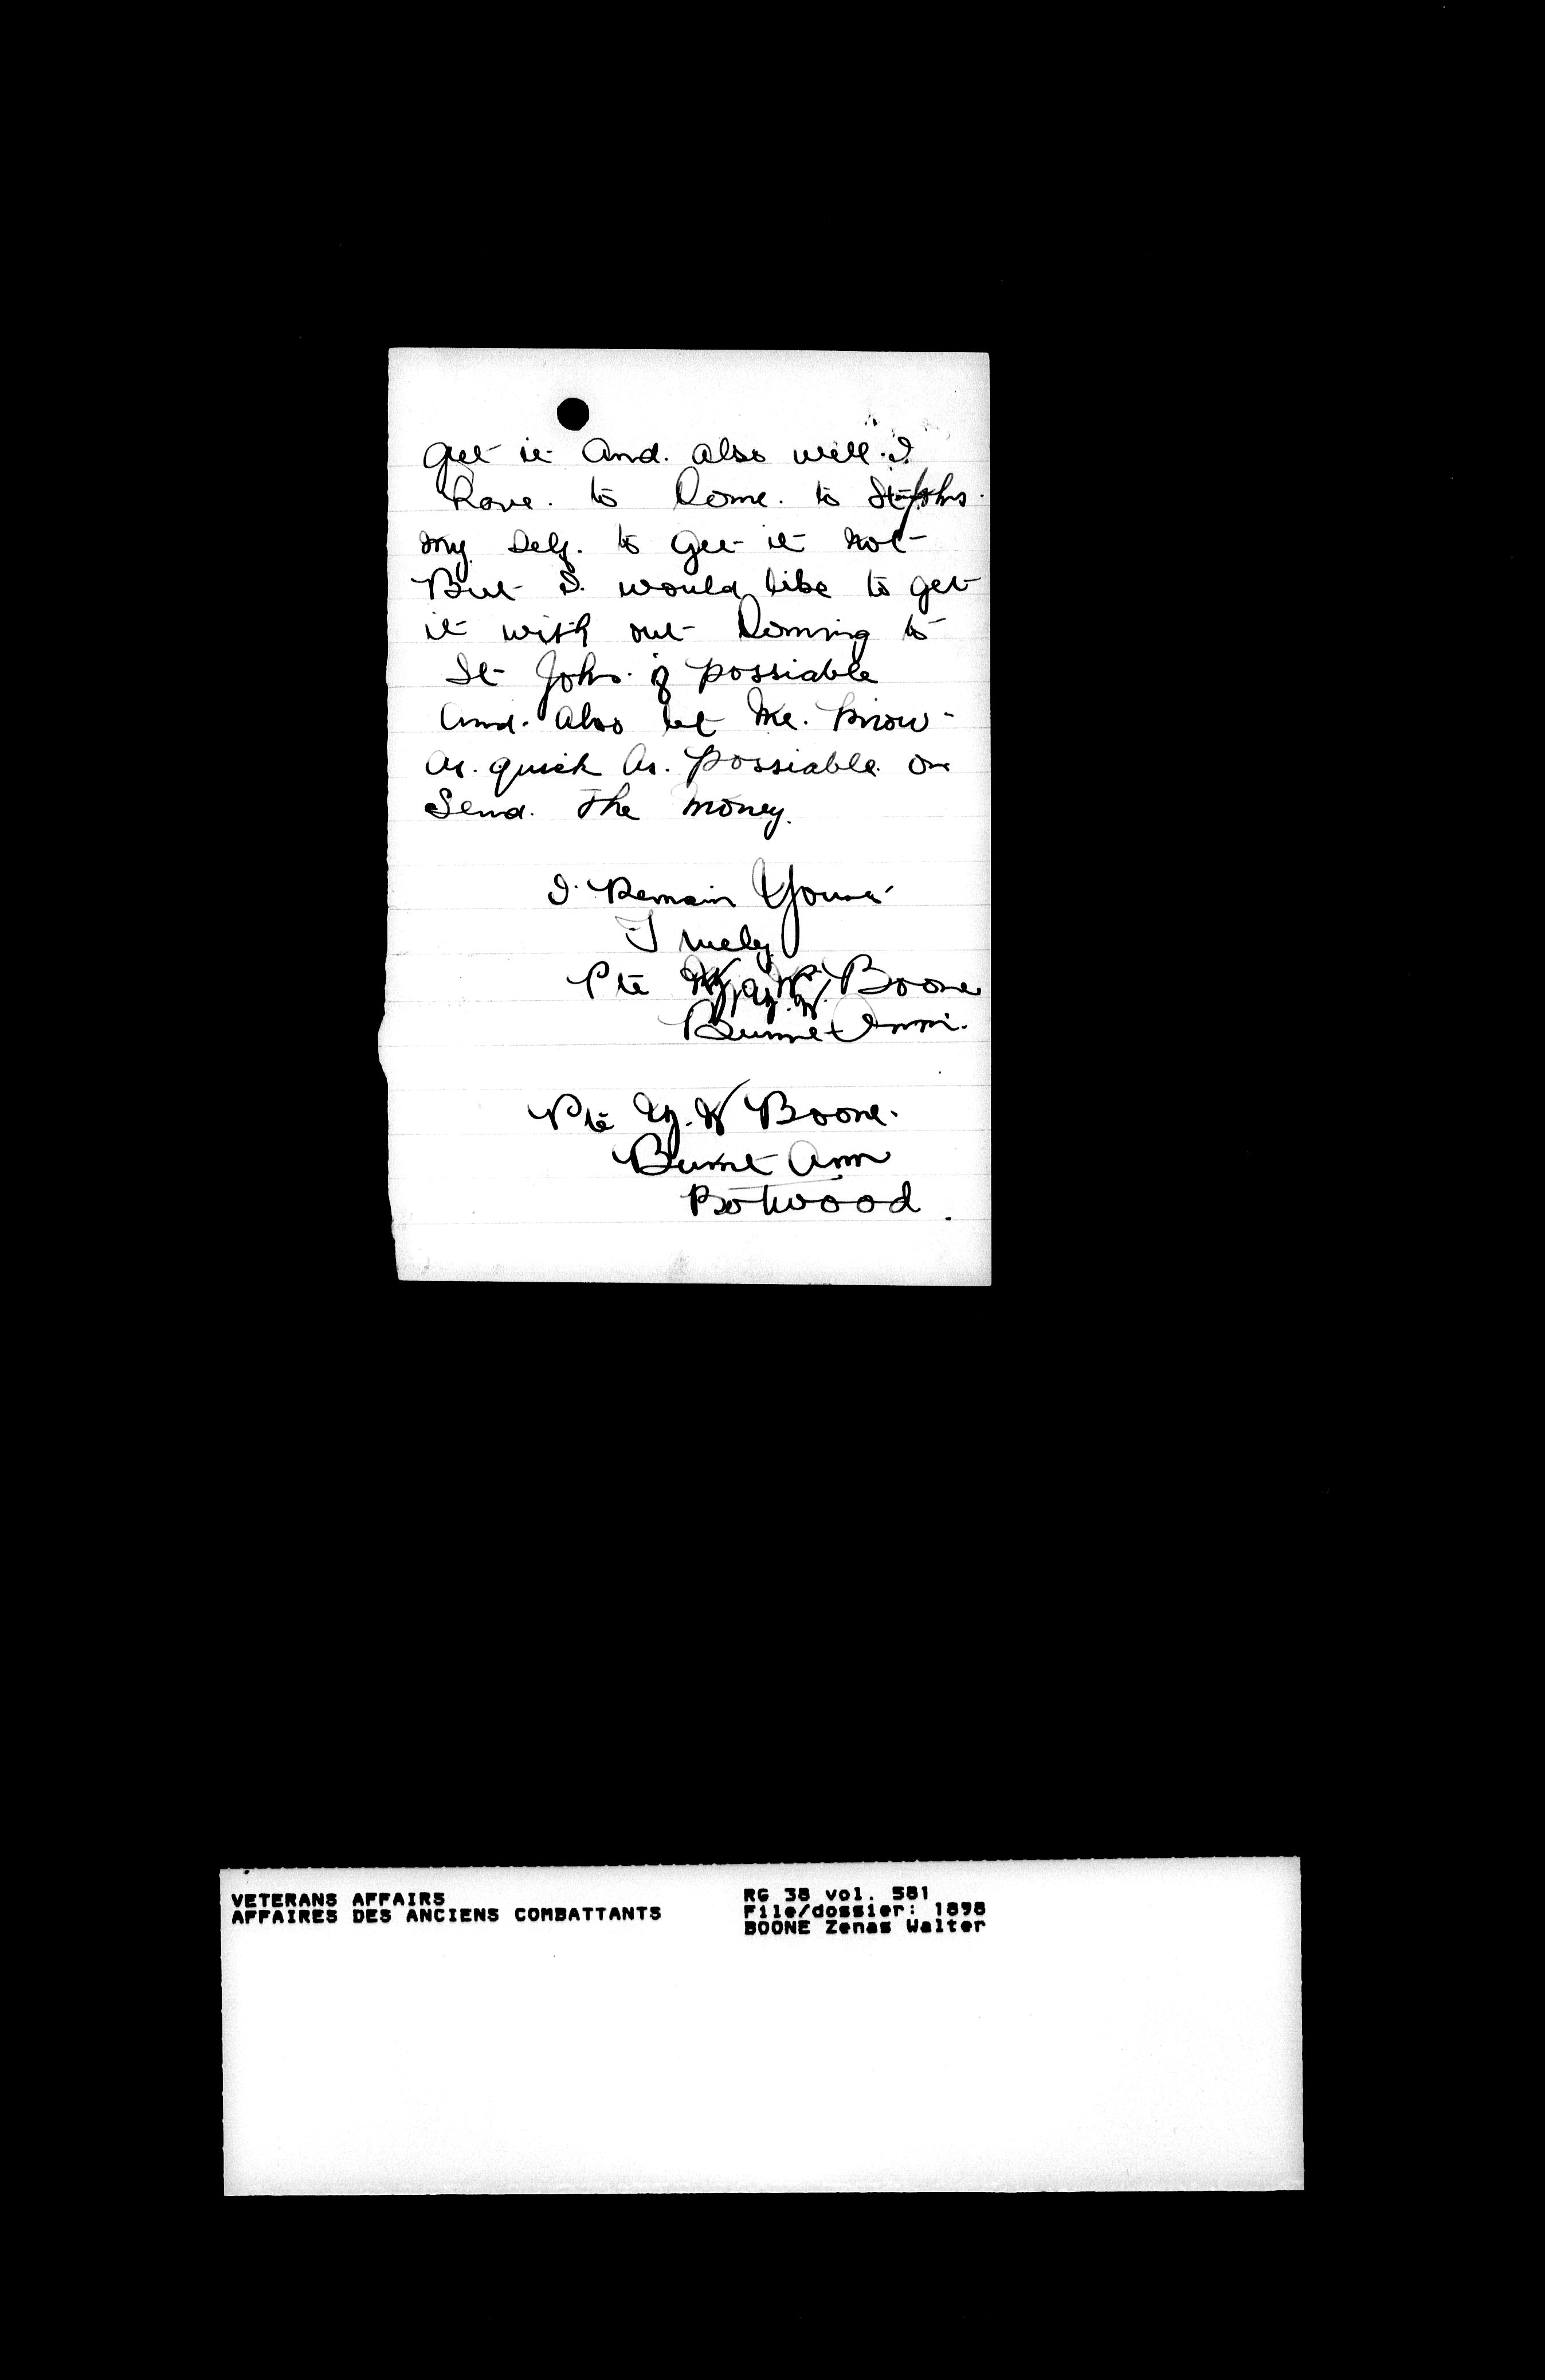 get it And. also will. I.
have. to Come. to St Johns.
my. Self. to get it not
But I. would like to get
it with out Comming to
St Johns. if possiable
And. also let me. know
As. quick As. possiable. or
Send. The money.
I. Remain Yours
Truely
Pte Z. W. Boone
Burnt Arm.
Pte Z. W Boone.
Burnt Arm
Botwood.
VETERANS AFFAIRS
AFFAIRES DES ANCIENS COMBATTANTS
RG 38 vol. 581
File/dossier: 1898
BOONE Zenas Walter